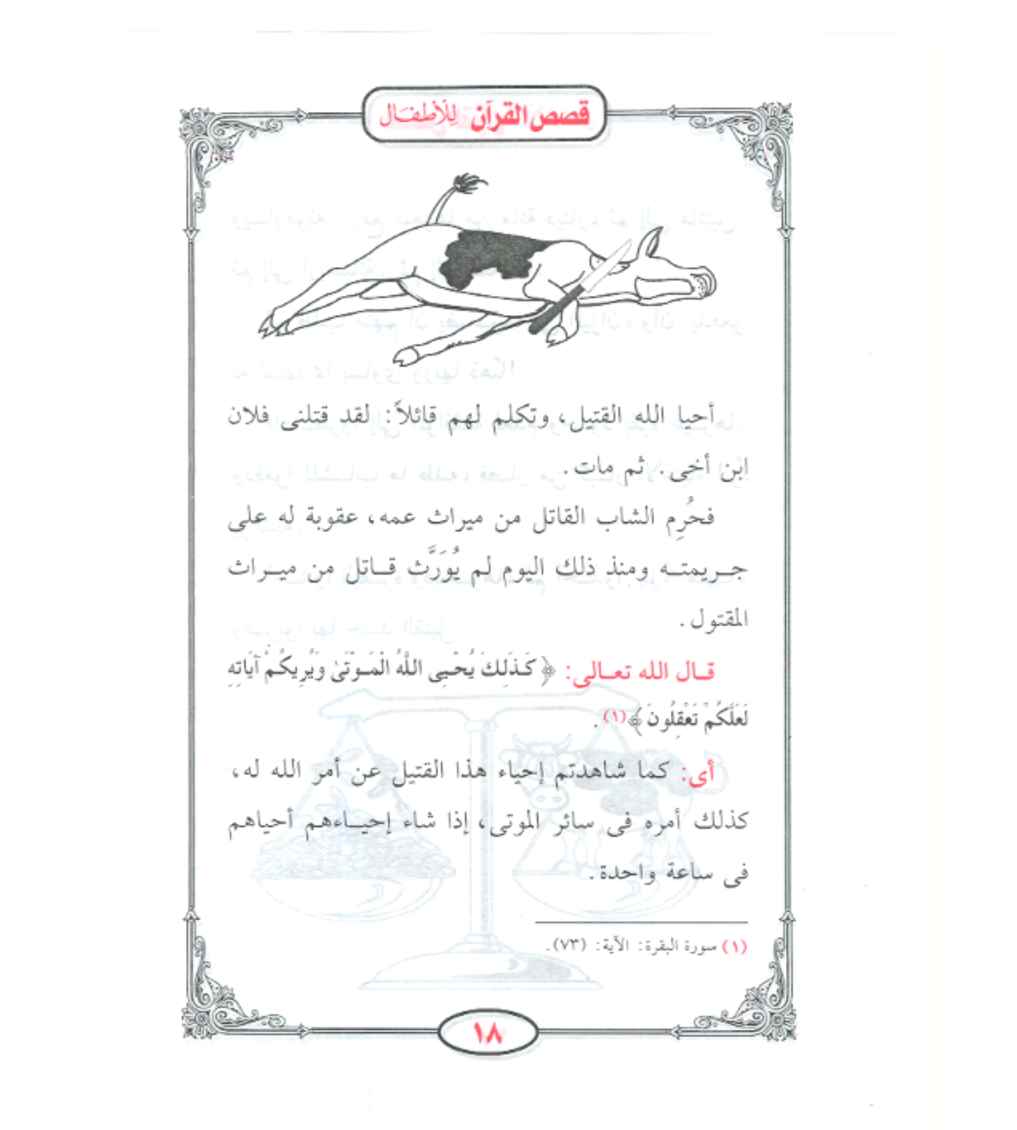 قصص القرآن للأطفال
أحيا الله القتيل، وتكلم لهم قائلاً: لقد قتلنى فلان
ابن أخى. ثم مات.
فحُرِم الشاب القاتل من ميراث عمه، عقوبة له على
جريمته ومنذ ذلك اليوم لم يُوَرَّث قاتل من ميراث
المقتول.
قال الله تعالى: ﴿كَذَلِكَ يُحْيِى اللَّهُ الْمَوْتَىٰ وَيُرِيكُمْ آيَاتِهِ
لَعَلَّكُمْ تَعْقِلُونَ﴾(١).
أى: كما شاهدتم إحياء هذا القتيل عن أمر الله له،
كذلك أمره فى سائر الموتى، إذا شاء إحياءهم أحياهم
فى ساعة واحدة.
(١) سورة البقرة: الآية: (٧٣).
١٨